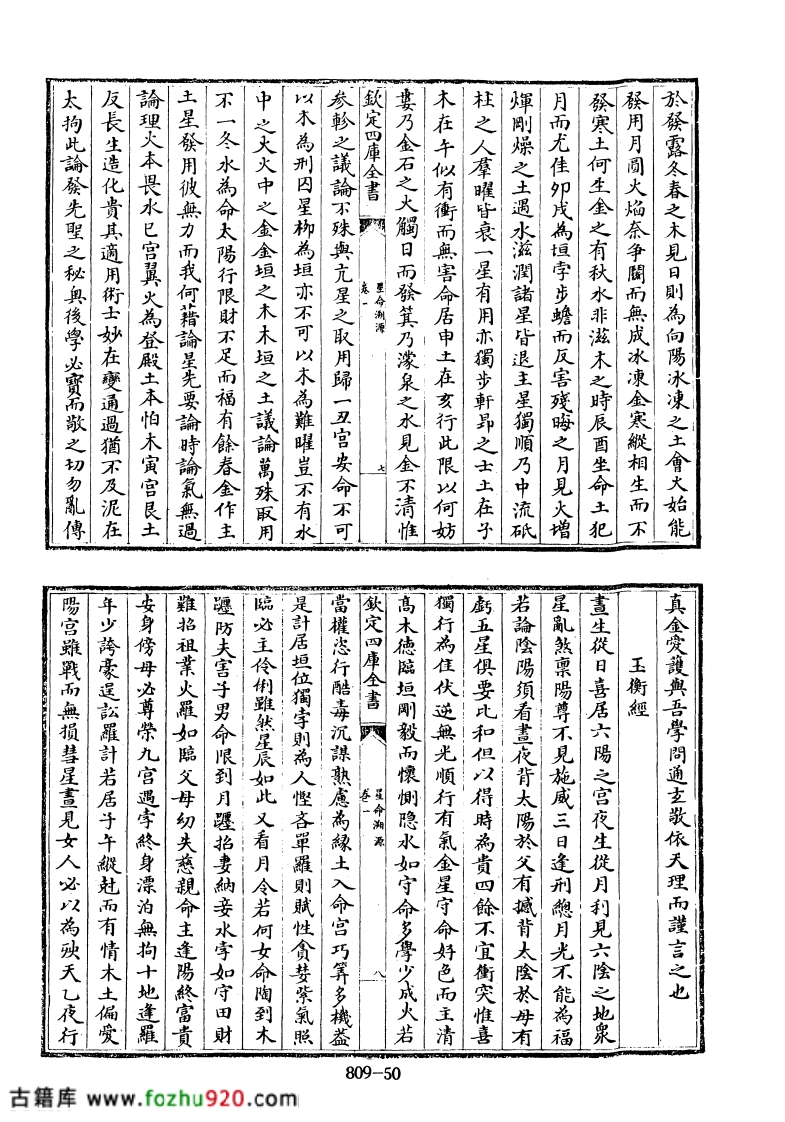 於發露冬春之木見日則為向陽冰凍之土會火始能
發用月圓火焰奈爭鬬而無成冰凍金寒縱相生而不
發寒土何生金之有秋水非滋木之時辰酉坐命土犯
月而尤佳卯戌為垣孛步蟾而反害殘晦之月見火增
煇剛燥之土遇水滋潤諸星皆退主星獨順乃中流砥
柱之人羣曜皆衰一星有用亦獨步軒昂之士土在子
木在午似有衝而無害命居申土在亥行此限以何妨
婁乃金石之火觸日而發箕乃濛泉之水見金不清惟
欽定四庫全書
星命溯源
卷一
七
參軫之議論不殊與亢星之取用歸一丑宮安命不可
以木為刑囚星柳為垣亦不可以木為難曜豈不有水
中之火火中之金金垣之木木垣之土議論萬殊取用
不一冬水為命太陽行限財不足而福有餘春金作主
土星發用彼無力而我何藉論星先要論時論氣無過
論理火本畏水巳宮翼火為登殿土本怕木寅宮艮土
反長生造化貴其適用術士妙在變通過猶不及泥在
太拘此論發先聖之秘奥後學必寶而敬之切勿亂傳
真金愛護與吾學問通玄敬依天理而謹言之也
玉衡經
晝生從日喜居六陽之宮夜生從月利見六陰之地衆
星亂煞稟陽尊不見施威三日逢刑總月光不能為福
若論陰陽須看晝夜背太陽於父有撼背太陰於母有
虧五星俱要比和但以得時為貴四餘不宜衝突惟喜
獨行為佳伏逆無光順行有氣金星守命好色而主清
高木德臨垣剛毅而懷惻隐水如守命多學少成火若
欽定四庫全書
星命溯源
卷一
八
當權恣行酷毒沉謀熟慮為緣土入命宮巧筭多機益
是計居垣位獨孛則為人慳吝單羅則賦性貪婪紫氣照
臨必主伶俐雖然星辰如此又看月令若何女命陶到木
躔防夫害子男命限到月躔招妻納妾水孛如守田財
難招祖業火羅如臨父母幼失慈親命主逢陽終富貴
安身傍母必尊榮九宮遇孛終身漂泊無拘十地逢羅
年少誇豪逞訟羅計若居子午縱尅而有情木土偏愛
陽宮雖戰而無損彗星晝見女人必以為殃天乙夜行
809-50
古籍库 www.fozhu920.com